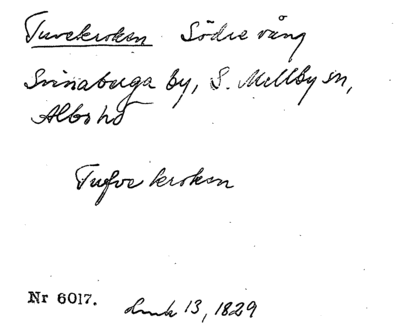 Tuvekroken Södre vång
Svinaberga by, S. Mellby sn,
Albo hd
Tufve kroken
Nr 6017.
13, 1829